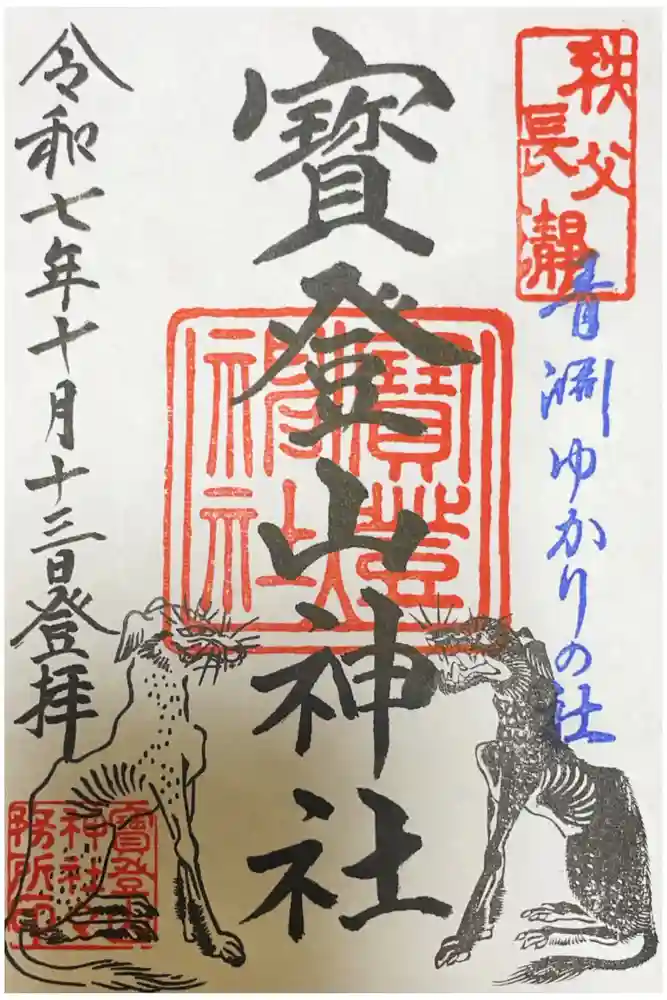 秩父
長瀞
青渊ゆかりの社
寳登山神社
寳登山
神社
令和七年十月十三日登拝
寳登山
神社社
務所印